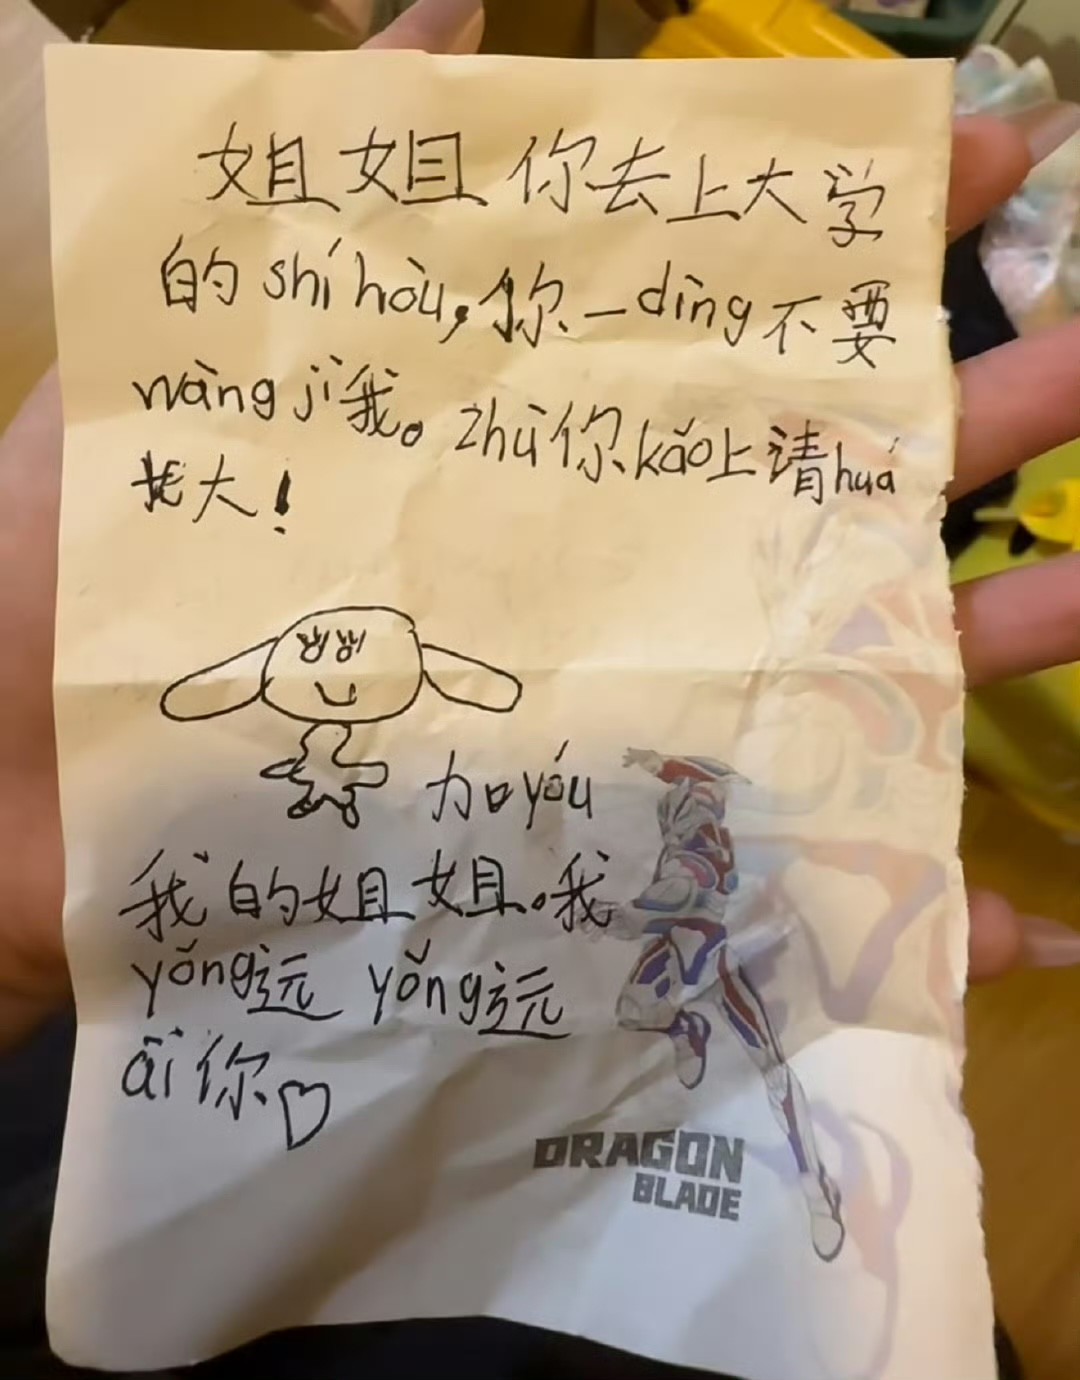 姐姐你去上大学
的shí hòu,你一dìng不要
wàng jì我。zhù你kǎo上请huá
北大!
加yóu
我的姐姐。我
yǒng远 yǒng远
ài你
DRAGON
BLADE